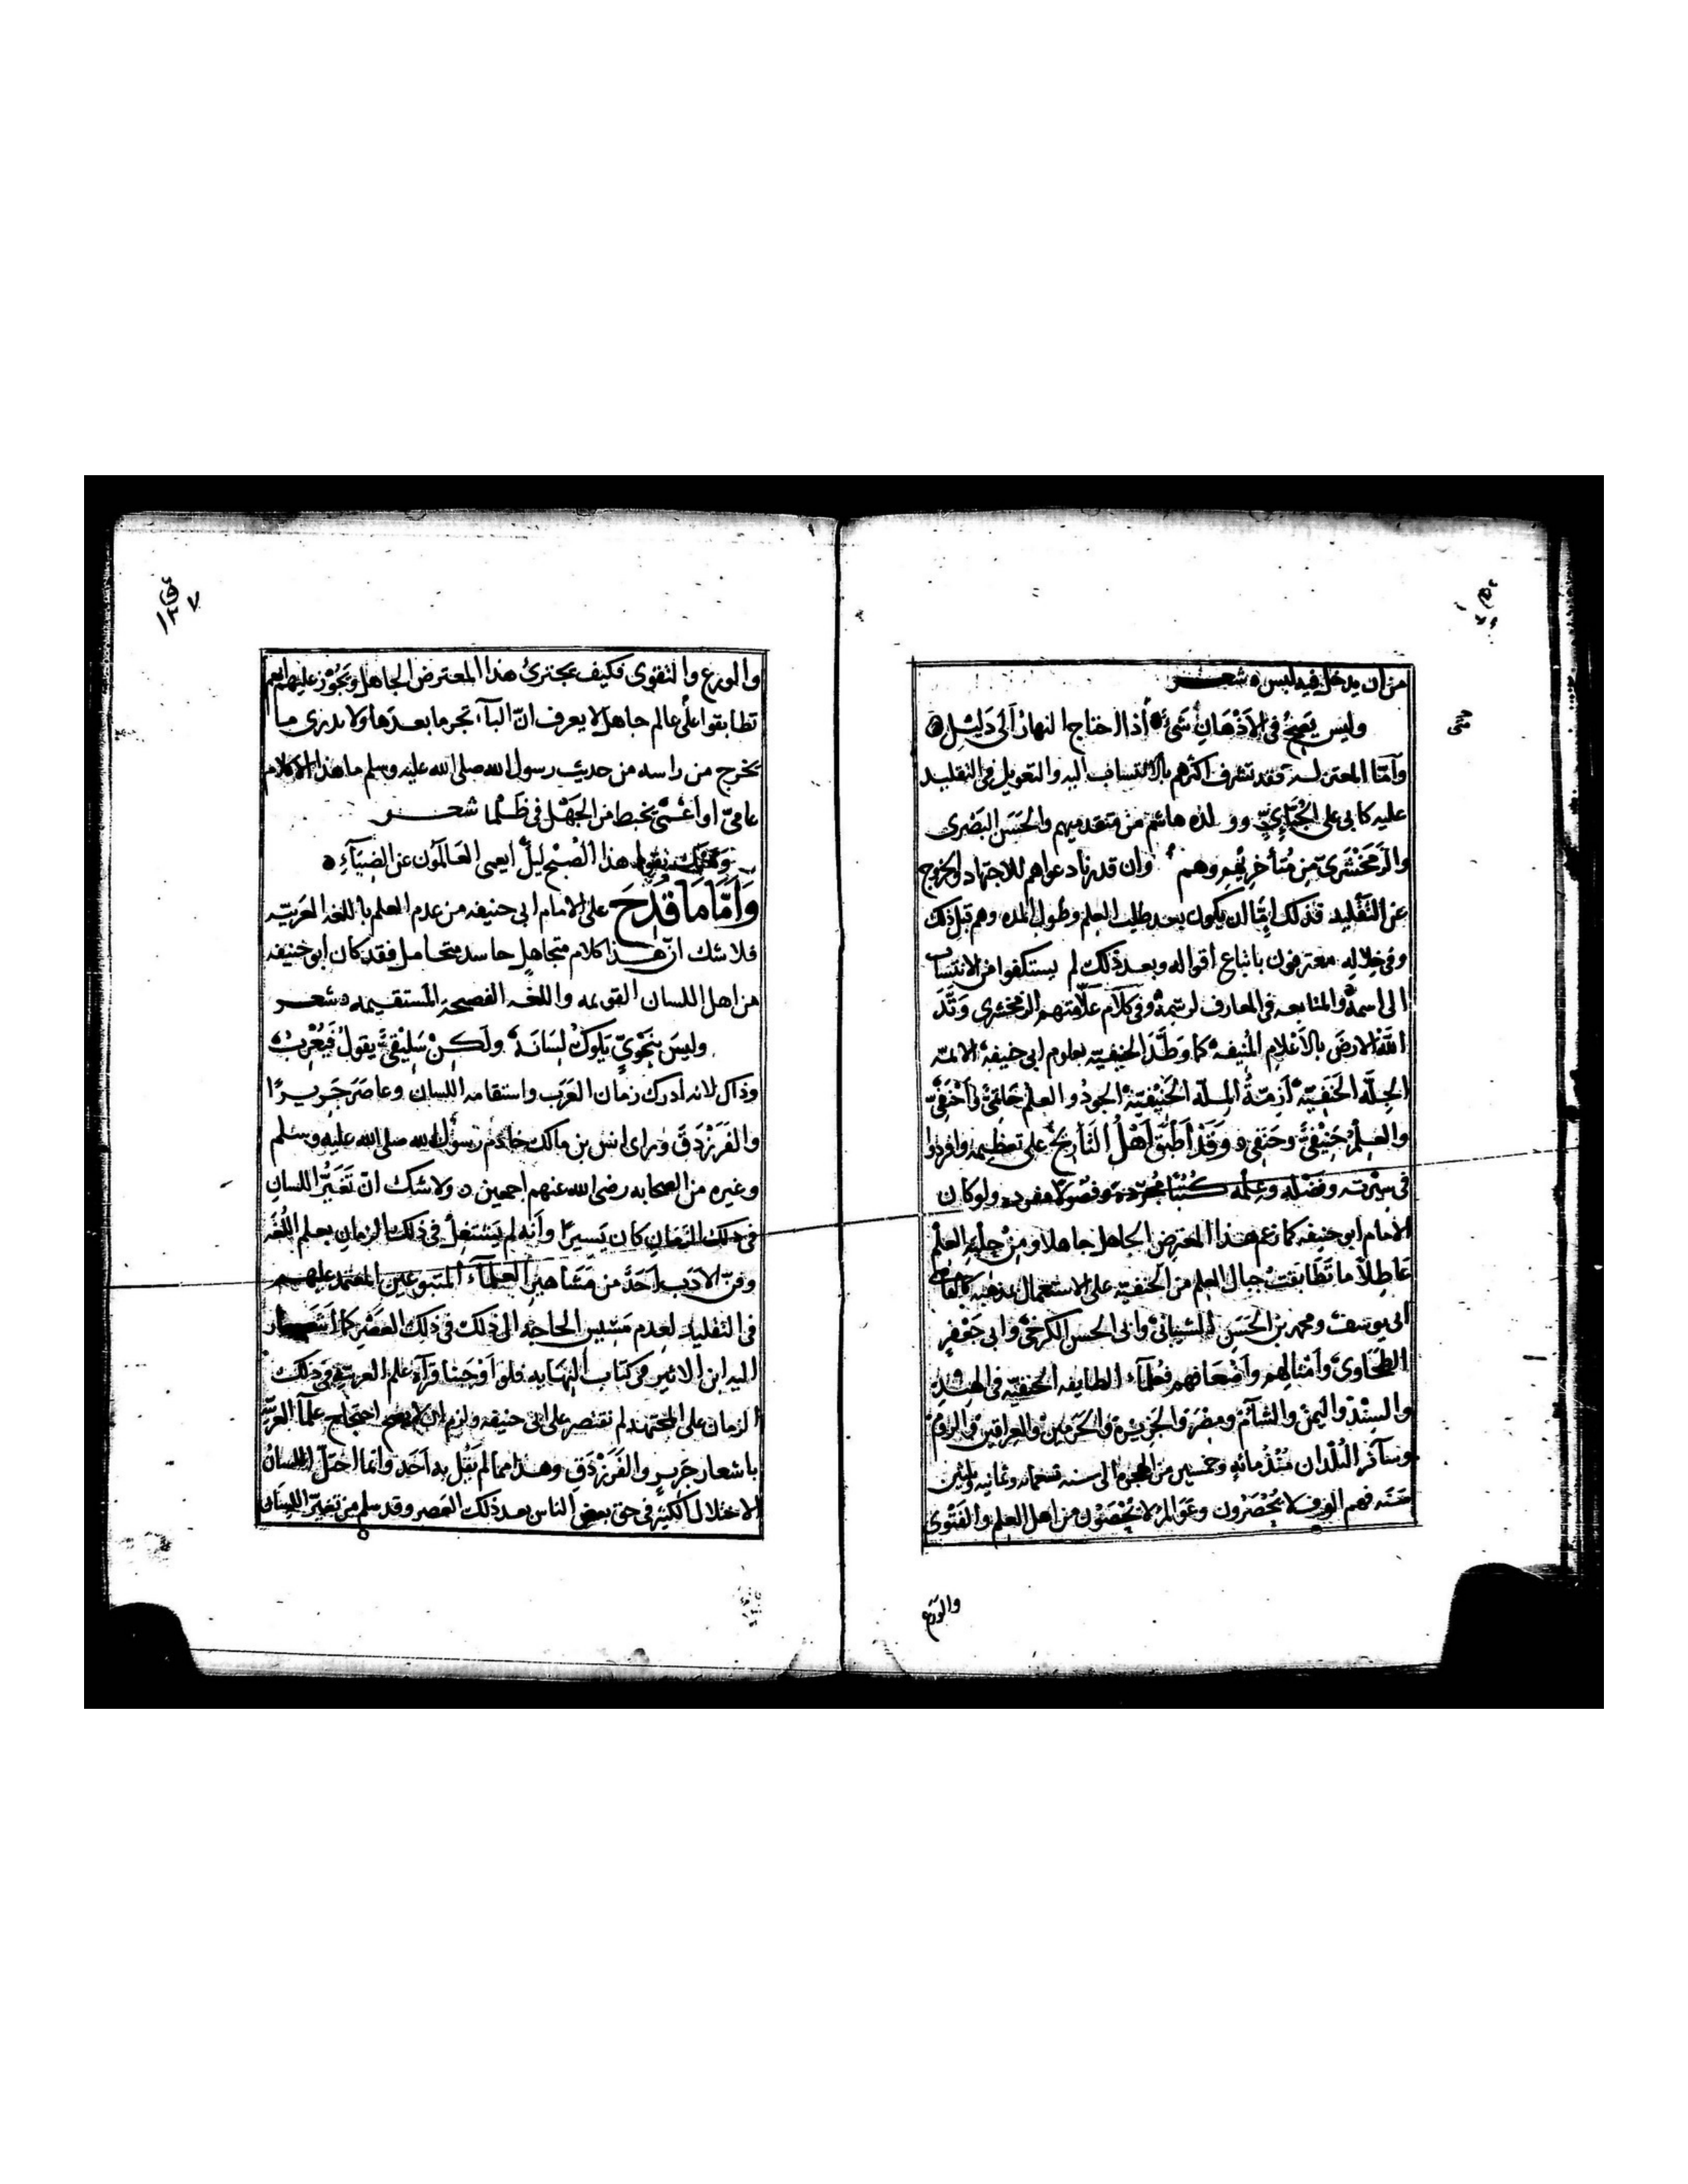 من ان يدخل فيه لبس ه شعــر
وليس يصح في الاذهان شيء اذا احتاج النهار الى دليل
متنبي
وامّا المعتزلــه فقد تشرف اكثرهم بالانتساب اليه والتعويل في التقليد
عليه كابي على الجُبّائيّ وولده هاشم من متقدميهم والحسَن البَصْرى
والزمَخْشَرىّ مِن مُتأخريهم وهم وان قدرنا دعواهم للاجتهاد والخروج
عن التَقْليد فذلك إنّما كان يكون بعد طلب العِلم وطول المده وهم قبل ذلك
وفى خلاله معترفون باتباع اقواله وبعد ذلك لم يستنكفوا من الانتساب
الى اسمه والمتابعه فى المعارف لرسمه وفى كلام علّامتهم الزمخشرى وَتَّدَ
الله الارضَ بالاعْلام المُنيفه كما وَطَّدَ الحنيفيّه بعلوم ابى حنيفه الائمّه
الجِلّه الحَنَفيّه أزِمّةُ المِلّه الحَنِيْفيّه الجودُ والعلم حَاتِمىّ وأحْنَفىّ
والعِلمُ حَنِيْفىّ وحَنَفى ه وَقَدْ أطبَقَ أهْلُ التأريخ على تعظيمه وافردوا
فى سِيْرته وفضله وعِلمه كُتُبًا مُجرّدة وفصُولًا مفرده ولوكان
الامام ابو حنيفه كما زعم هذا المعترض الجاهل جاهلا ومِنْ حِليَةِ العِلم
عَاطِلًا ما تَطَابَقَتْ جبال العِلم من الحَنَفيّه على الاستعمال بمذهبه كالقاضى
ابى يوسف ومحمد بن الحسَن الشيبانىّ وابى الحسن الكرخىّ وابى جَعْفرٍ
الطَحَاوىّ وامثالهم واضعافهم فعُلمآء الطايفه الحنفيّه فى الهِنْد
والسِنْد واليمن والشآم ومِصْر والجَزِيره والحَرمَين والعِراقين والروم
وسآئر البُلْدان مُنْذُ مائه وخمسين من الهجره الى سنه تسعمائه وثمانيه وثلثين
سَنَه فهم الوف لا يُحْصَرُون وعَوَالم لا يُحْصَوْن من اهل العِلم والفَتْوى
والورع
١٣٧
والورع والتقوى فكيف يجترئ هذا المعترض الجاهل ويُجَوّز عليهم انهم
تطابقوا على عالم جاهل لا يعرف انّ البآء تجر ما بعدَها ولا يدرى ما
يخرج من راسه من حديث رسول الله صلى الله عليه وسلم ما هذا الا كلام
عامىّ او اعْمَى يخبط من الجَهْل فى ظَلْما شعـــر
وَهَبْك تقول هذا الصُبْح ليلٌ أيعمى العَالَمُون عن الضِيَآءِ ه
وَأمَّا مَا قَدَحَ على الامام ابى حنيفه من عدم العلم باللغه العَربيّه
فلا شك ان هذا كلام متجاهلٍ حاسد متحامل فقد كان ابو حنيفه
من اهل اللسان القويمه واللغه الفصيحه المستقيمه ه شعــر
وليسَ بنَحْوىّ يَلُوكُ لِسَانَهُ ولَكِنْ سَلِيْقىّ يقولُ فيُعْرِبُ
وذاك لانه ادرك زمان العَرَب واستقامه اللسان وعاصَرَ جَرِيرًا
والفَرَزْدَقَ وراى انس بن مالك خادم رسول الله صلى الله عليه وسلم
وغيره من الصحابه رضى الله عنهم اجمعين ه ولا شك انّ تَغَيُّرَ اللسان
فى ذلك الزمان كان يَسيرًا وأنه لم يَشتغِلْ فى ذلك الزمان بعلم اللُغَه
وفنّ الادَب احَدٌ من مَشاهير العلمآء المتبوعين المعتمد عليهــم
فى التقليد لعدم مَسيس الحاجه الى ذلك فى ذلك العَصْر كما اشار
اليه ابن الاثير فى كتاب النهايه فلو أوْجَبْنا قرآءه علم العربيّه فى ذلك
الزمان على المجتهد لم نقتصر على ابى حنيفه ولزم ان لا يصح احتجاج علمآ العربيّه
باشعار جَريرٍ والفَرَزْدَقِ وهذا مما لم يَقُل به احَد وانما اختلّ اللسانُ
الاختلال الكثير فى حق بعض الناس بعد ذلك العصر وقد سلم من تغيّر اللسَان